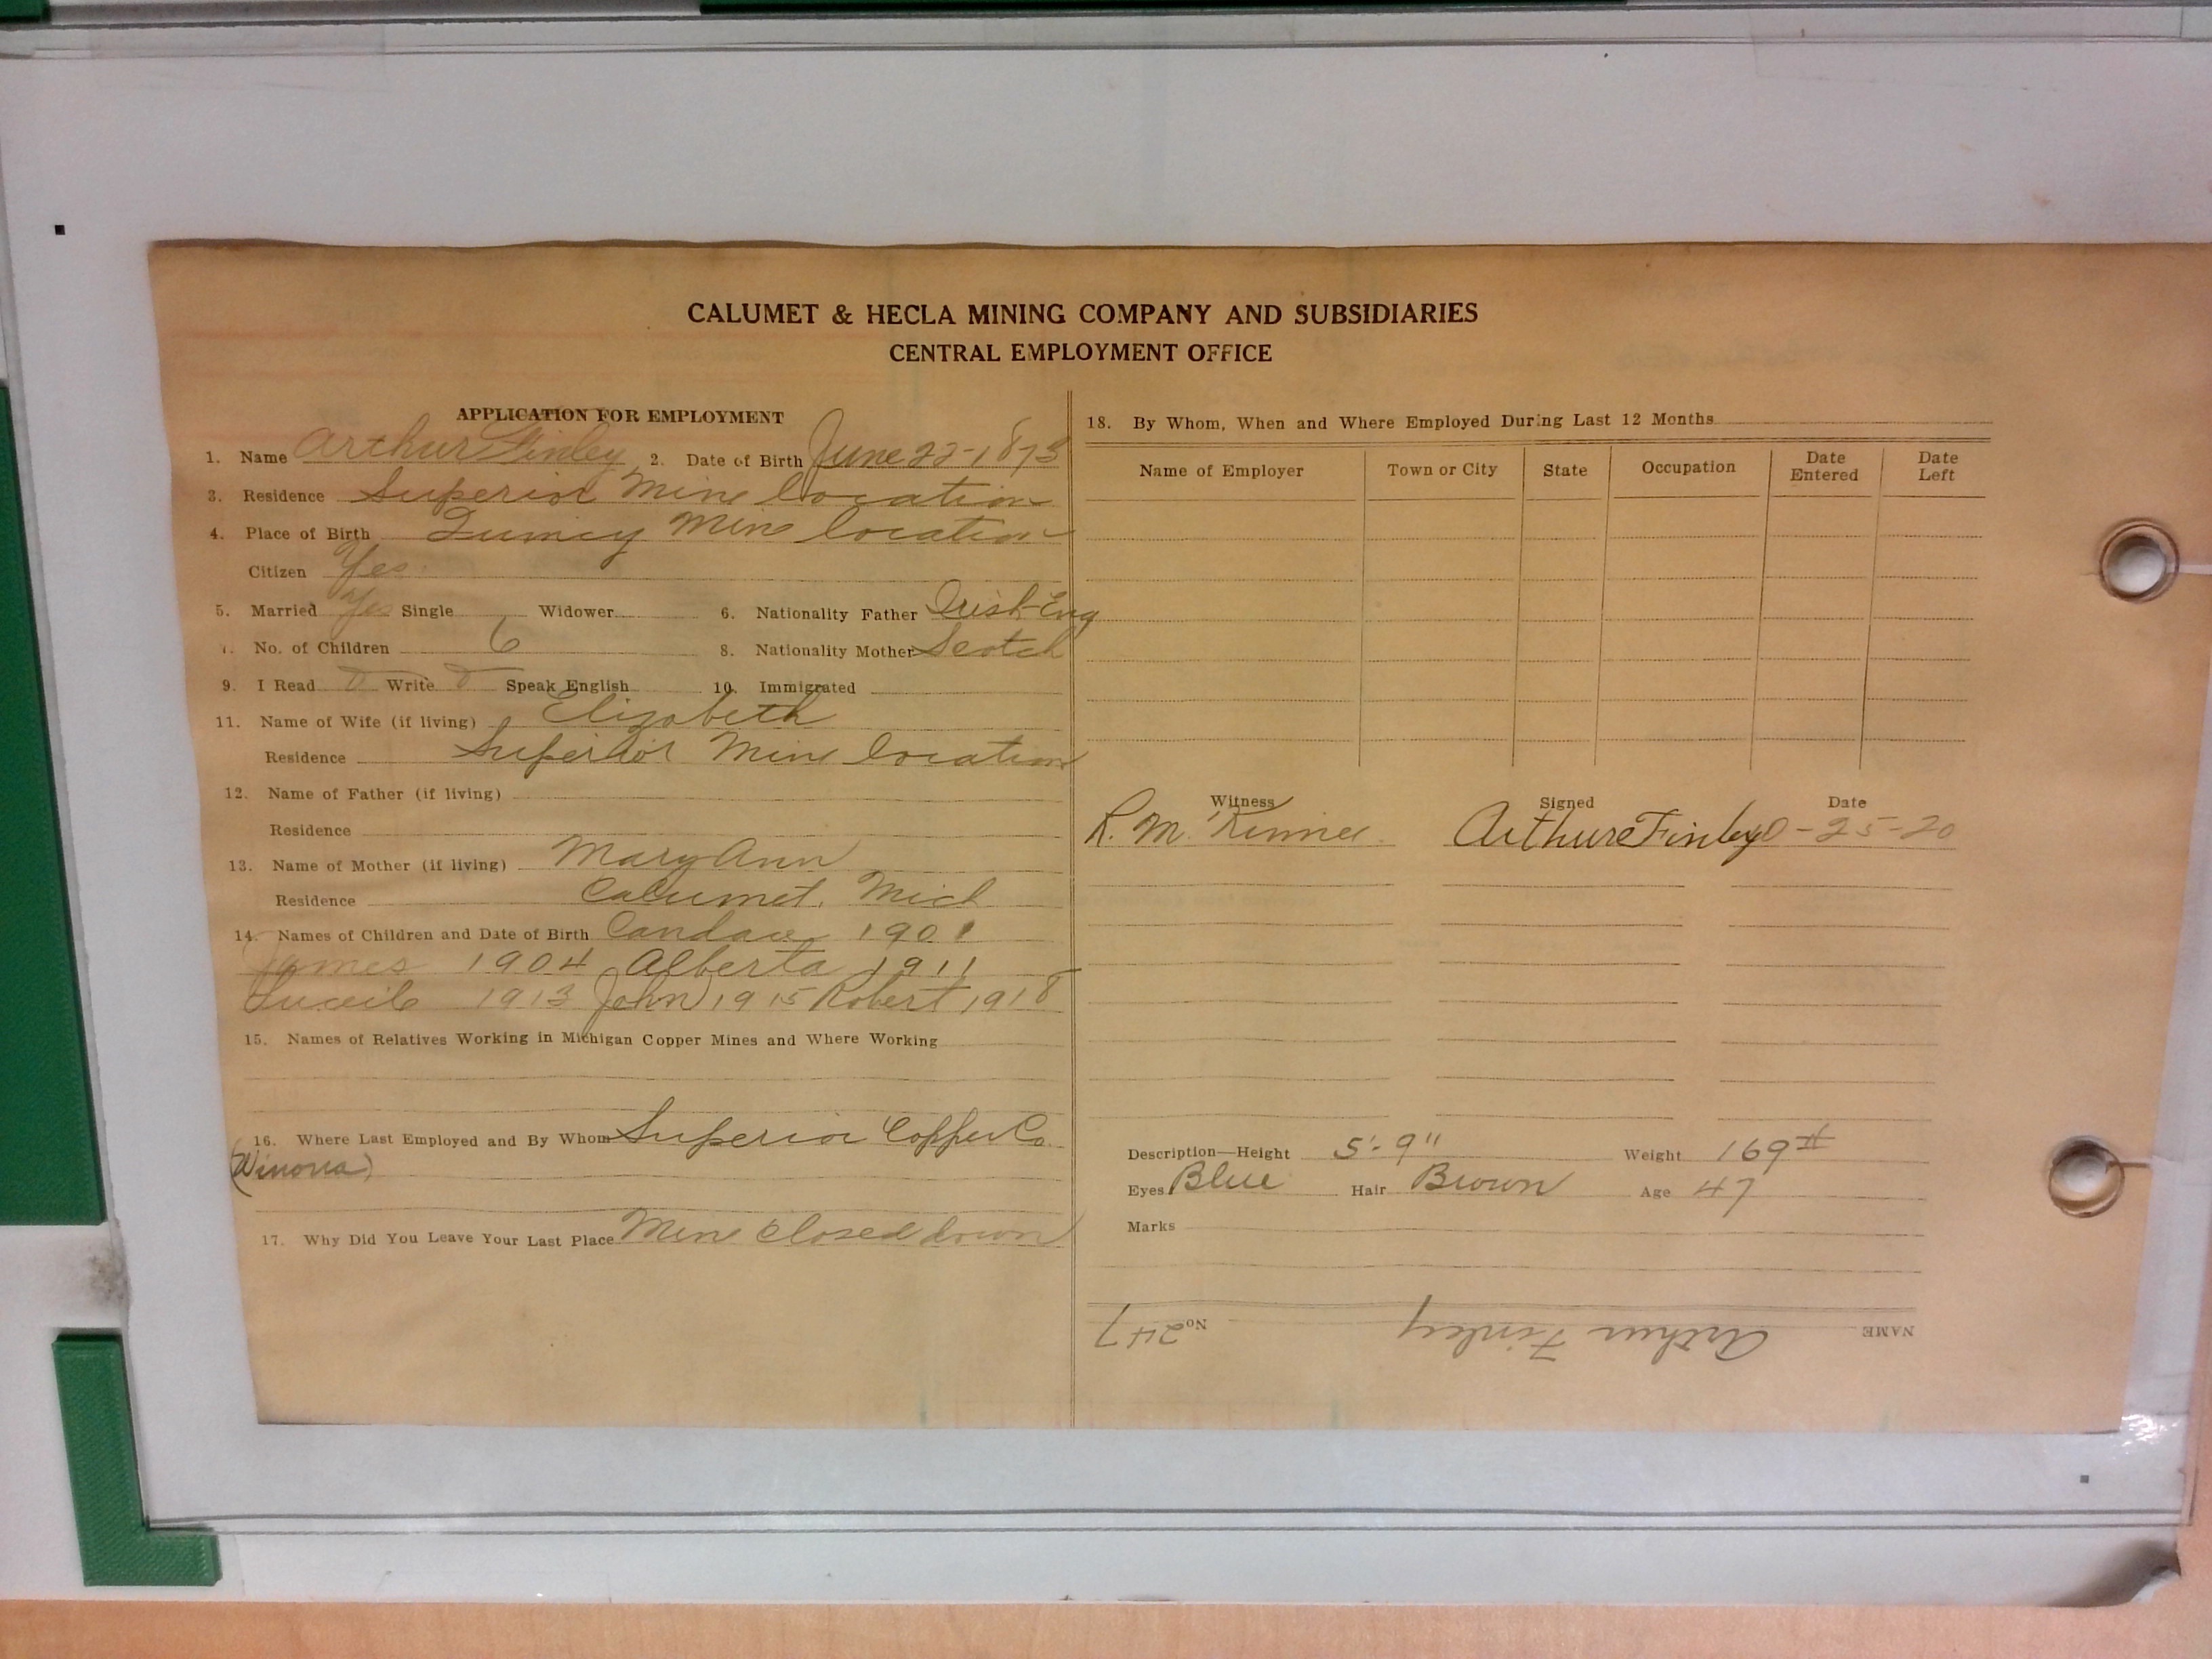 CALUMET & HECLA MINING COMPANY AND SUBSIDIARIES
CENTRAL EMPLOYMENT OFFICE
APPLICATION FOR EMPLOYMENT
1. Name Arthur Finley 2. Date of Birth June 22-1873
3. Residence Superior Mine location
4. Place of Birth Quincy Mine location
Citizen Yes
5. Married Yes Single Widower 6. Nationality Father Irish-Eng
7. No. of Children 6 8. Nationality Mother Scotch
9. I Read Write Speak English 10. Immigrated
11. Name of Wife (if living) Elizabeth
Residence Superior Mine location
12. Name of Father (if living)
Residence
13. Name of Mother (if living) Mary Ann
Residence Calumet, Mich
14. Names of Children and Date of Birth Candace 1901
James 1904 Alberta 1911
Luceile 1913 John 1915 Robert 1918
15. Names of Relatives Working in Michigan Copper Mines and Where Working
16. Where Last Employed and By Whom Superior Copper Co
(Winona)
17. Why Did You Leave Your Last Place Mine closed down
18. By Whom, When and Where Employed During Last 12 Months
Name of Employer Town or City State Occupation Date Entered Date Left
Witness Signed Date
R. M. Arthur Finley 25-20
Description—Height 5'-9" Weight 169#
Eyes Blue Hair Brown Age 47
Marks
NAME Arthur Finley No. 247